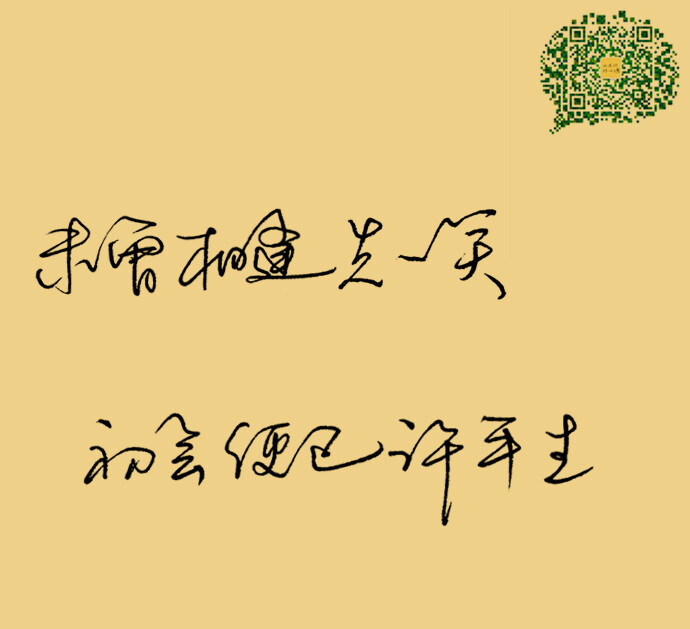 未曾相逢先一笑
初会便已许平生